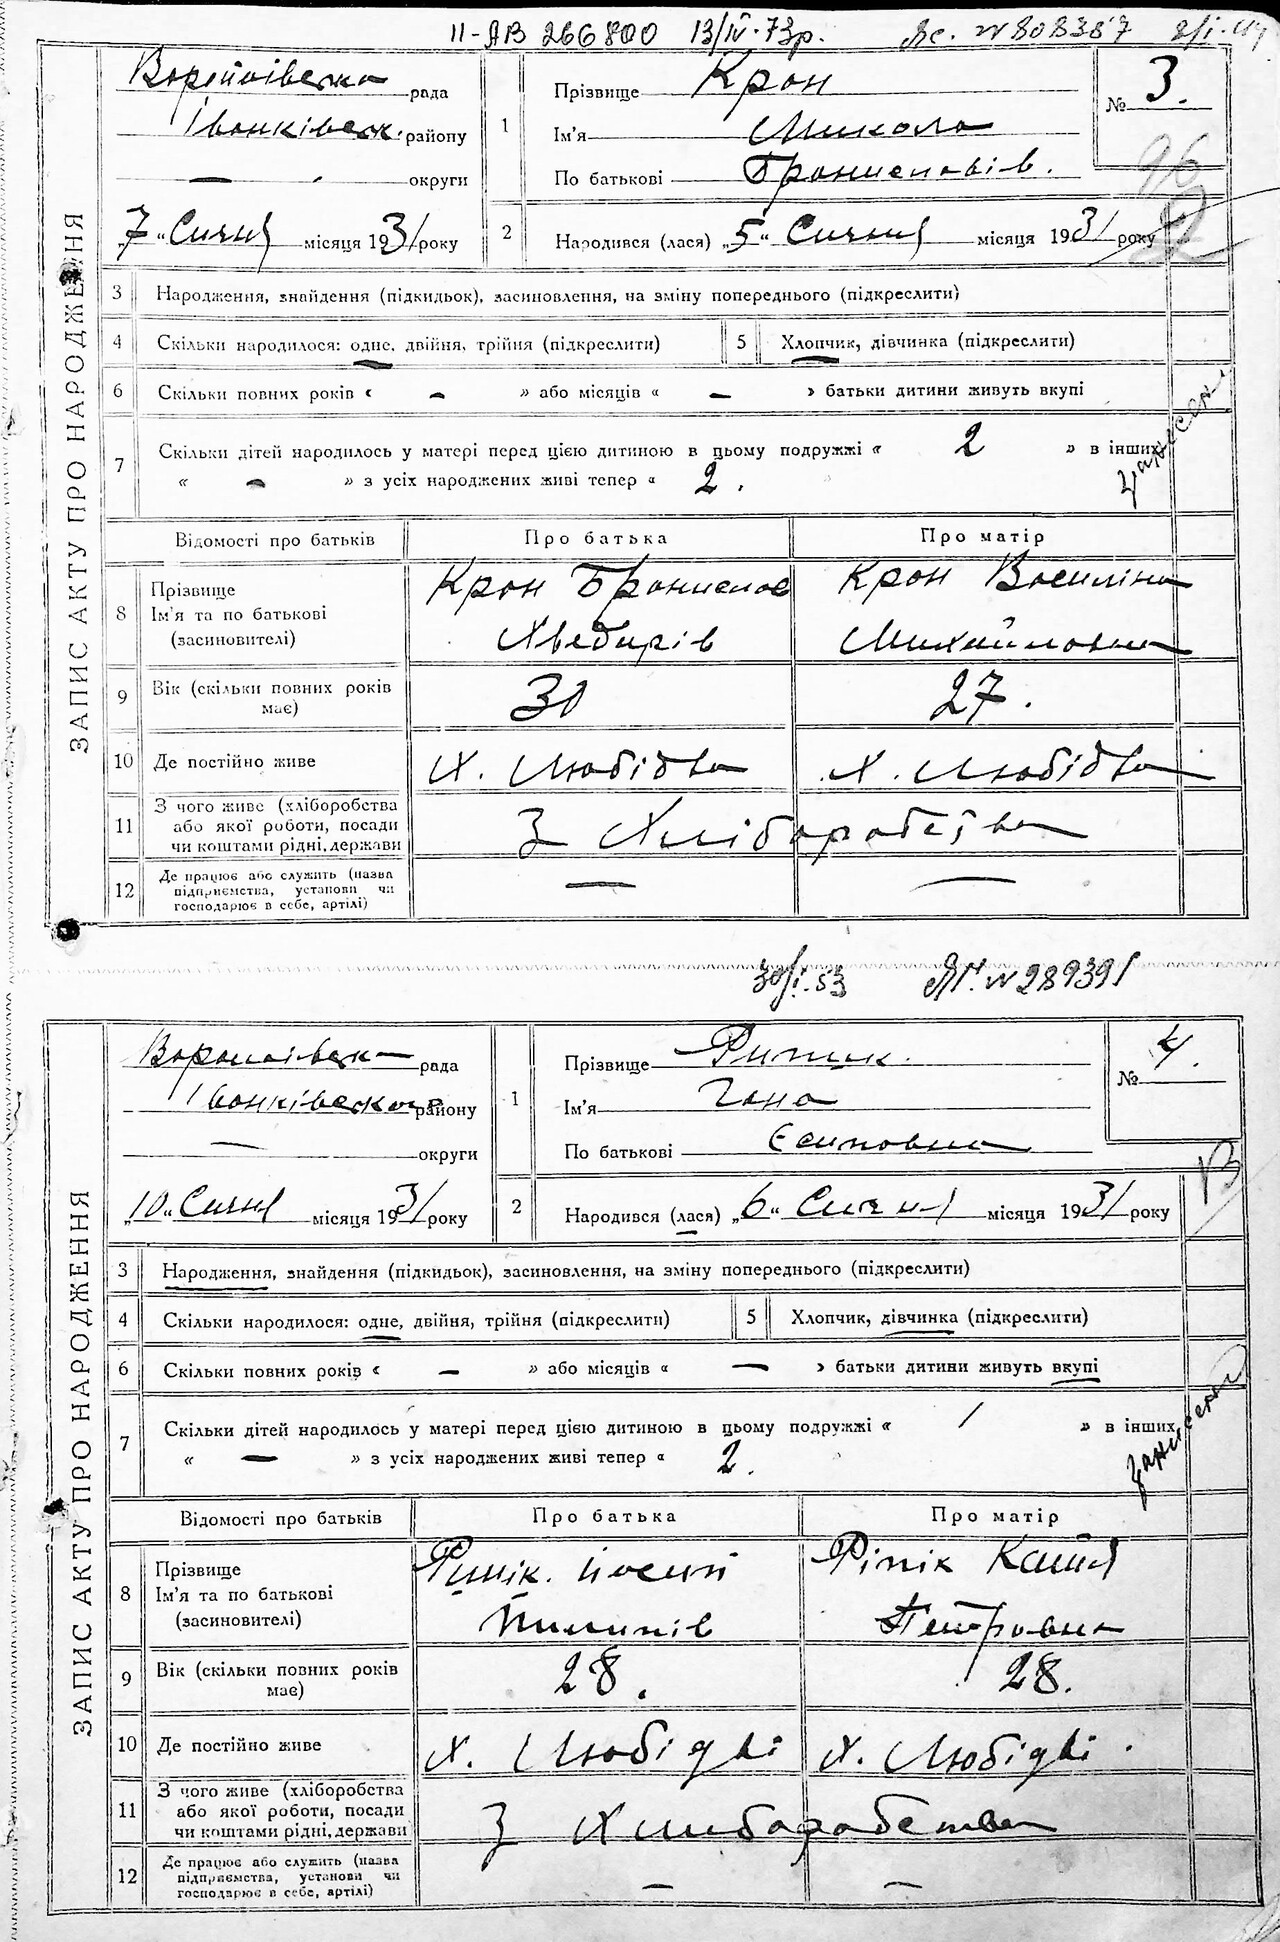 II-АВ 266800 13/IV-73р. Яс. № 808387
рада
Іванківськ. району
— округи
„7“ Січня місяця 1931 року
1 Прізвище Крон
Ім'я Микола
По батькові Браниславів.
№ 3.
96
2 Народився (лася) „5“ Січня місяця 1931 року
ЗАПИС АКТУ ПРО НАРОДЖЕННЯ
3 Народження, знайдення (підкидьок), засиновлення, на зміну попереднього (підкреслити)
4 Скільки народилося: одне, двійня, трійня (підкреслити) 5 Хлопчик, дівчинка (підкреслити)
6 Скільки повних років « — » або місяців « — » батьки дитини живуть вкупі
7 Скільки дітей народилось у матері перед цією дитиною в цьому подружжі « 2 » в інших
« — » з усіх народжених живі тепер « 2.
занесен
Відомості про батьків Про батька Про матір
8 Прізвище Ім'я та по батькові (засиновителі)
Крон Бранислав Крон Василіна
Хведирів Михайловна
9 Вік (скільки повних років має) 30 27.
10 Де постійно живе Х. Любідва Х. Любідва
11 З чого живе (хліборобства або якої роботи, посади чи коштами рідні, держави
З Хліборобства
12 Де працює або служить (назва підприємства, установи чи господарює в себе, артілі) — —
30/I-53 № 289391
рада
Іванківського району
— округи
„10“ Січня місяця 1931 року
1 Прізвище Рипік.
Ім'я Гана
По батькові Єсиповна
№ 4.
13
2 Народився (лася) „6“ Січня місяця 1931 року
ЗАПИС АКТУ ПРО НАРОДЖЕННЯ
3 Народження, знайдення (підкидьок), засиновлення, на зміну попереднього (підкреслити)
4 Скільки народилося: одне, двійня, трійня (підкреслити) 5 Хлопчик, дівчинка (підкреслити)
6 Скільки повних років « — » або місяців « — » батьки дитини живуть вкупі
7 Скільки дітей народилось у матері перед цією дитиною в цьому подружжі « 1 » в інших
« — » з усіх народжених живі тепер « 2.
занесена
Відомості про батьків Про батька Про матір
8 Прізвище Ім'я та по батькові (засиновителі)
Рипік. Йосип Ріпік Катя
Пилипів Петровна
9 Вік (скільки повних років має) 28. 28.
10 Де постійно живе Х. Любідві Х. Любідві.
11 З чого живе (хліборобства або якої роботи, посади чи коштами рідні, держави
З Хлиборобства
12 Де працює або служить (назва підприємства, установи чи господарює в себе, артілі) — —